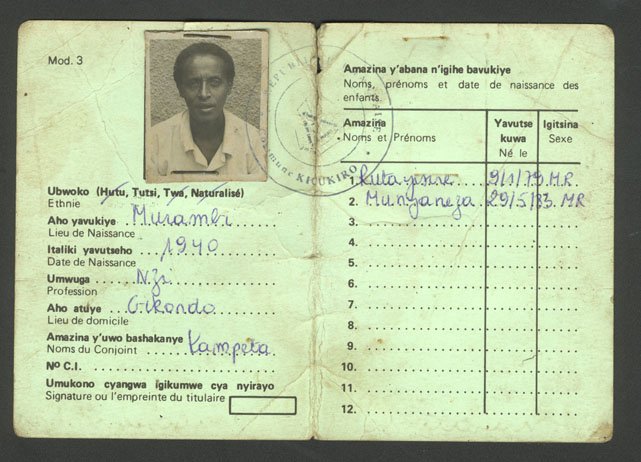 Mod. 3
Ubwoko (Hutu, Tutsi, Twa, Naturalisé)
Ethnie
Aho yavukiye Murambi
Lieu de Naissance
Italiki yavutseho 1940
Date de Naissance
Umwuga Nzi
Profession
Aho atuye Gikondo
Lieu de domicile
Amazina y'uwo bashakanye
Noms du Conjoint Kampeta
Nº C.I.
Umukono cyangwa igikumwe cya nyirayo
Signature ou l'empreinte du titulaire
KICUKIRO
Amazina y'abana n'igihe bavukiye
Noms, prénoms et date de naissance des
enfants.
Amazina Yavutse Igitsina
Noms et Prénoms kuwa Sexe
Né le
1. Rutayisire 9/1/79 MR
2. Munyaneza 29/5/83. MR
3.
4.
5.
6.
7.
8.
9.
10.
11.
12.